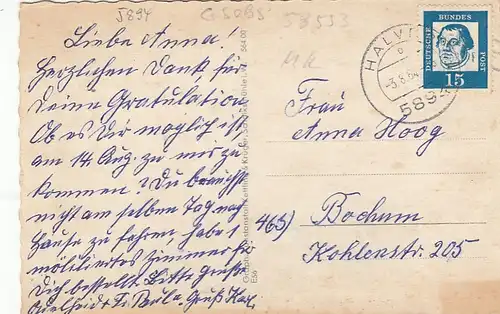 J894
GSOBS
58553
Liebe Anna!
Herzlichen Dank für
Deine Gratulation
Ob es Dir möglich ist
am 14 Aug. zu mir zu
kommen? Du brauchst
nicht am selben Tag nach
Hause zu fahren, habe 1
möbliertes Zimmer für
Dich bestellt. Bitte grüße
Adelheid + Fr. Paula. Gruß
HALV
5893
DEUTSCHE BUNDESPOST
15
Frau
Anna Hoog
463) Bochum
Kohlenstr. 205